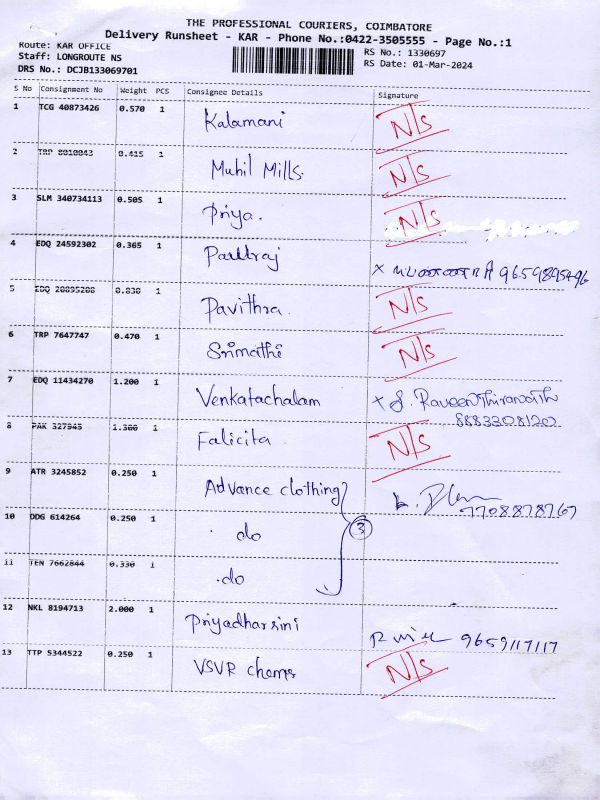 THE PROFESSIONAL COURIERS, COIMBATORE
Delivery Runsheet - KAR - Phone No.:0422-3505555 - Page No.:1
Route: KAR OFFICE
RS No.: 1330697
Staff: LONGROUTE NS
RS Date: 01-Mar-2024
DRS No.: DCJB133069701
S No Consignment No Weight PCS Consignee Details Signature
1 TCG 40873426 0.570 1 Kalamani N/S
2 TRP 8010043 0.415 1 Muhil Mills N/S
3 SLM 340734113 0.505 1 Priya. N/S
4 EDQ 24592302 0.365 1 x 9659895496
5 EDQ 20895288 0.830 1 Pavithra. N/S
6 TRP 7647747 0.470 1 Srimathi N/S
7 EDQ 11434270 1.200 1 Venkatachalam x
8883308120
8 PAK 327945 1.300 1 Falicita. N/S
9 ATR 3245852 0.250 1 Advance clothing
7708878767
10 DDG 614264 0.250 1 do 3
11 TEN 7662844 0.330 1 .do
12 NKL 8194713 2.000 1 Priyadharsini 9659117117
13 TTP 5344522 0.250 1 VSVR chems N/S